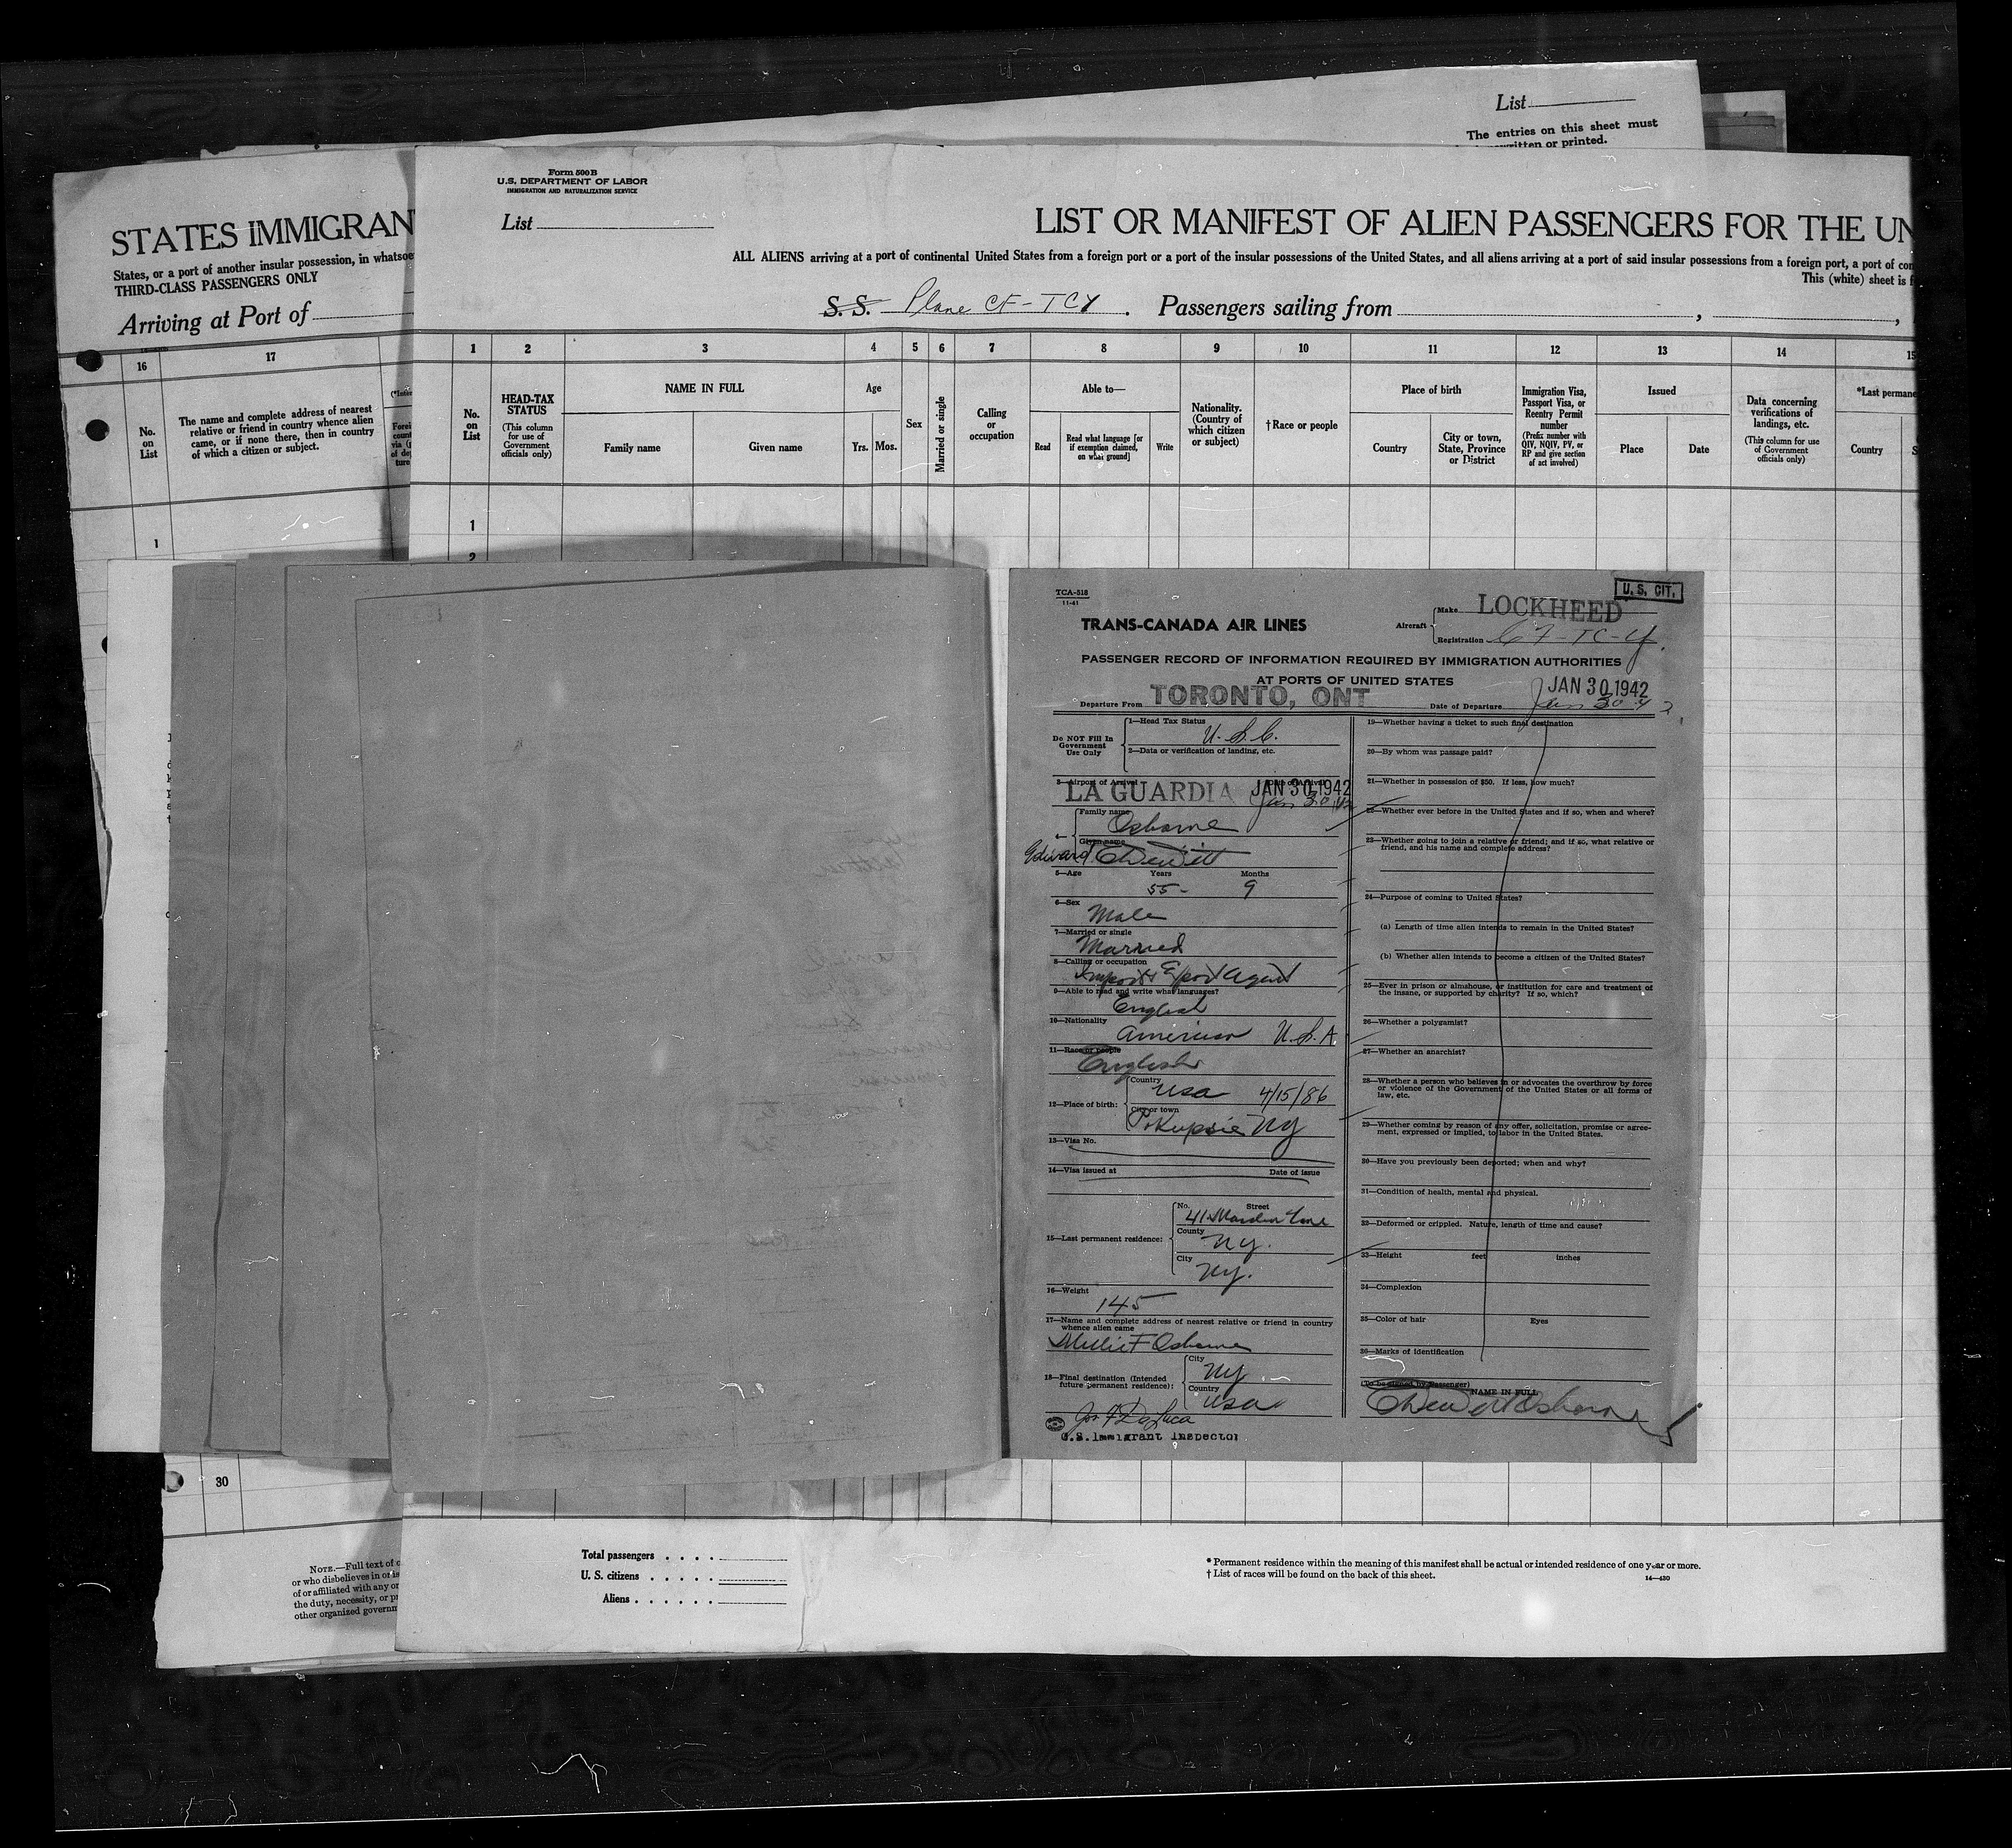 List
The entries on this sheet must
written or printed.
STATES IMMIGRAN
States, or a port of another insular possession, in whatsoe
THIRD-CLASS PASSENGERS ONLY
Arriving at Port of
16
17
No.
on
List
The name and complete address of nearest
relative or friend in country whence alien
came, or if none there, then in country
of which a citizen or subject.
1
Form 500 B
U.S. DEPARTMENT OF LABOR
IMMIGRATION AND NATURALIZATION SERVICE
List
LIST OR MANIFEST OF ALIEN PASSENGERS FOR THE UN
ALL ALIENS arriving at a port of continental United States from a foreign port or a port of the insular possessions of the United States, and all aliens arriving at a port of said insular possessions from a foreign port, a port of con
This (white) sheet is f
S. S. Plane CF-TCY. Passengers sailing from , ,
1 2 3 4 5 6 7 8 9 10 11 12 13 14 15
No.
on
List
HEAD-TAX
STATUS
(This column
for use of
Government
officials only)
NAME IN FULL
Family name Given name
Age
Yrs. Mos.
Sex
Married or single
Calling
or
occupation
Able to—
Read
Read what language [or
if exemption claimed,
on what ground]
Write
Nationality.
(Country of
which citizen
or subject)
†Race or people
Place of birth
Country
City or town,
State, Province
or District
Immigration Visa,
Passport Visa, or
Reentry Permit
number
(Prefix number with
QIV, NQIV, PV, or
RP and give section
of act involved)
Issued
Place Date
Data concerning
verifications of
landings, etc.
(This column for use
of Government
officials only)
*Last permane
Country
1
2
TCA-518
11-41
U. S. CIT.
TRANS-CANADA AIR LINES
Aircraft
Make LOCKHEED
Registration CF-TC-Y.
PASSENGER RECORD OF INFORMATION REQUIRED BY IMMIGRATION AUTHORITIES
AT PORTS OF UNITED STATES
Departure From TORONTO, ONT
Date of Departure JAN 30 1942
Jan 30 42
Do NOT Fill In
Government
Use Only
1—Head Tax Status
U.S.C.
2—Data or verification of landing, etc.
3—Airport of Arrival
LA GUARDIA JAN 30 1942
Jan 30/42
4— Family name
Osborne
Given name
Edward Dewitt
5—Age Years Months
55 - 9
6—Sex
Male
7—Married or single
Married
8—Calling or occupation
Import & Export Agent
9—Able to read and write what languages?
English
10—Nationality
American U.S.A.
11—Race or people
English
12—Place of birth:
Country
USA 4/15/86
City or town
Pokupsie NY
13—Visa No.
14—Visa issued at Date of issue
15—Last permanent residence:
No. Street
41 Maiden Lane
County
NY.
City
NY.
16—Weight
145
17—Name and complete address of nearest relative or friend in country
whence alien came
F Osborne
18—Final destination (Intended
future permanent residence):
City
NY
Country
USA
Jos F De Luca
U.S. Immigrant Inspector
19—Whether having a ticket to such final destination
20—By whom was passage paid?
21—Whether in possession of $50. If less, how much?
22—Whether ever before in the United States and if so, when and where?
23—Whether going to join a relative or friend; and if so, what relative or
friend, and his name and complete address?
24—Purpose of coming to United States?
(a) Length of time alien intends to remain in the United States?
(b) Whether alien intends to become a citizen of the United States?
25—Ever in prison or almshouse, or institution for care and treatment of
the insane, or supported by charity? If so, which?
26—Whether a polygamist?
27—Whether an anarchist?
28—Whether a person who believes in or advocates the overthrow by force
or violence of the Government of the United States or all forms of
law, etc.
29—Whether coming by reason of any offer, solicitation, promise or agree-
ment, expressed or implied, to labor in the United States.
30—Have you previously been deported; when and why?
31—Condition of health, mental and physical.
32—Deformed or crippled. Nature, length of time and cause?
33—Height feet inches
34—Complexion
35—Color of hair Eyes
36—Marks of identification
(To be signed by Passenger)
NAME IN FULL
30
NOTE.—Full text of
or who disbelieves in or is
of or affiliated with any or
the duty, necessity, or pr
other organized governm
Total passengers . . . .
U. S. citizens . . . . .
Aliens . . . . . .
* Permanent residence within the meaning of this manifest shall be actual or intended residence of one year or more.
† List of races will be found on the back of this sheet.
14—430